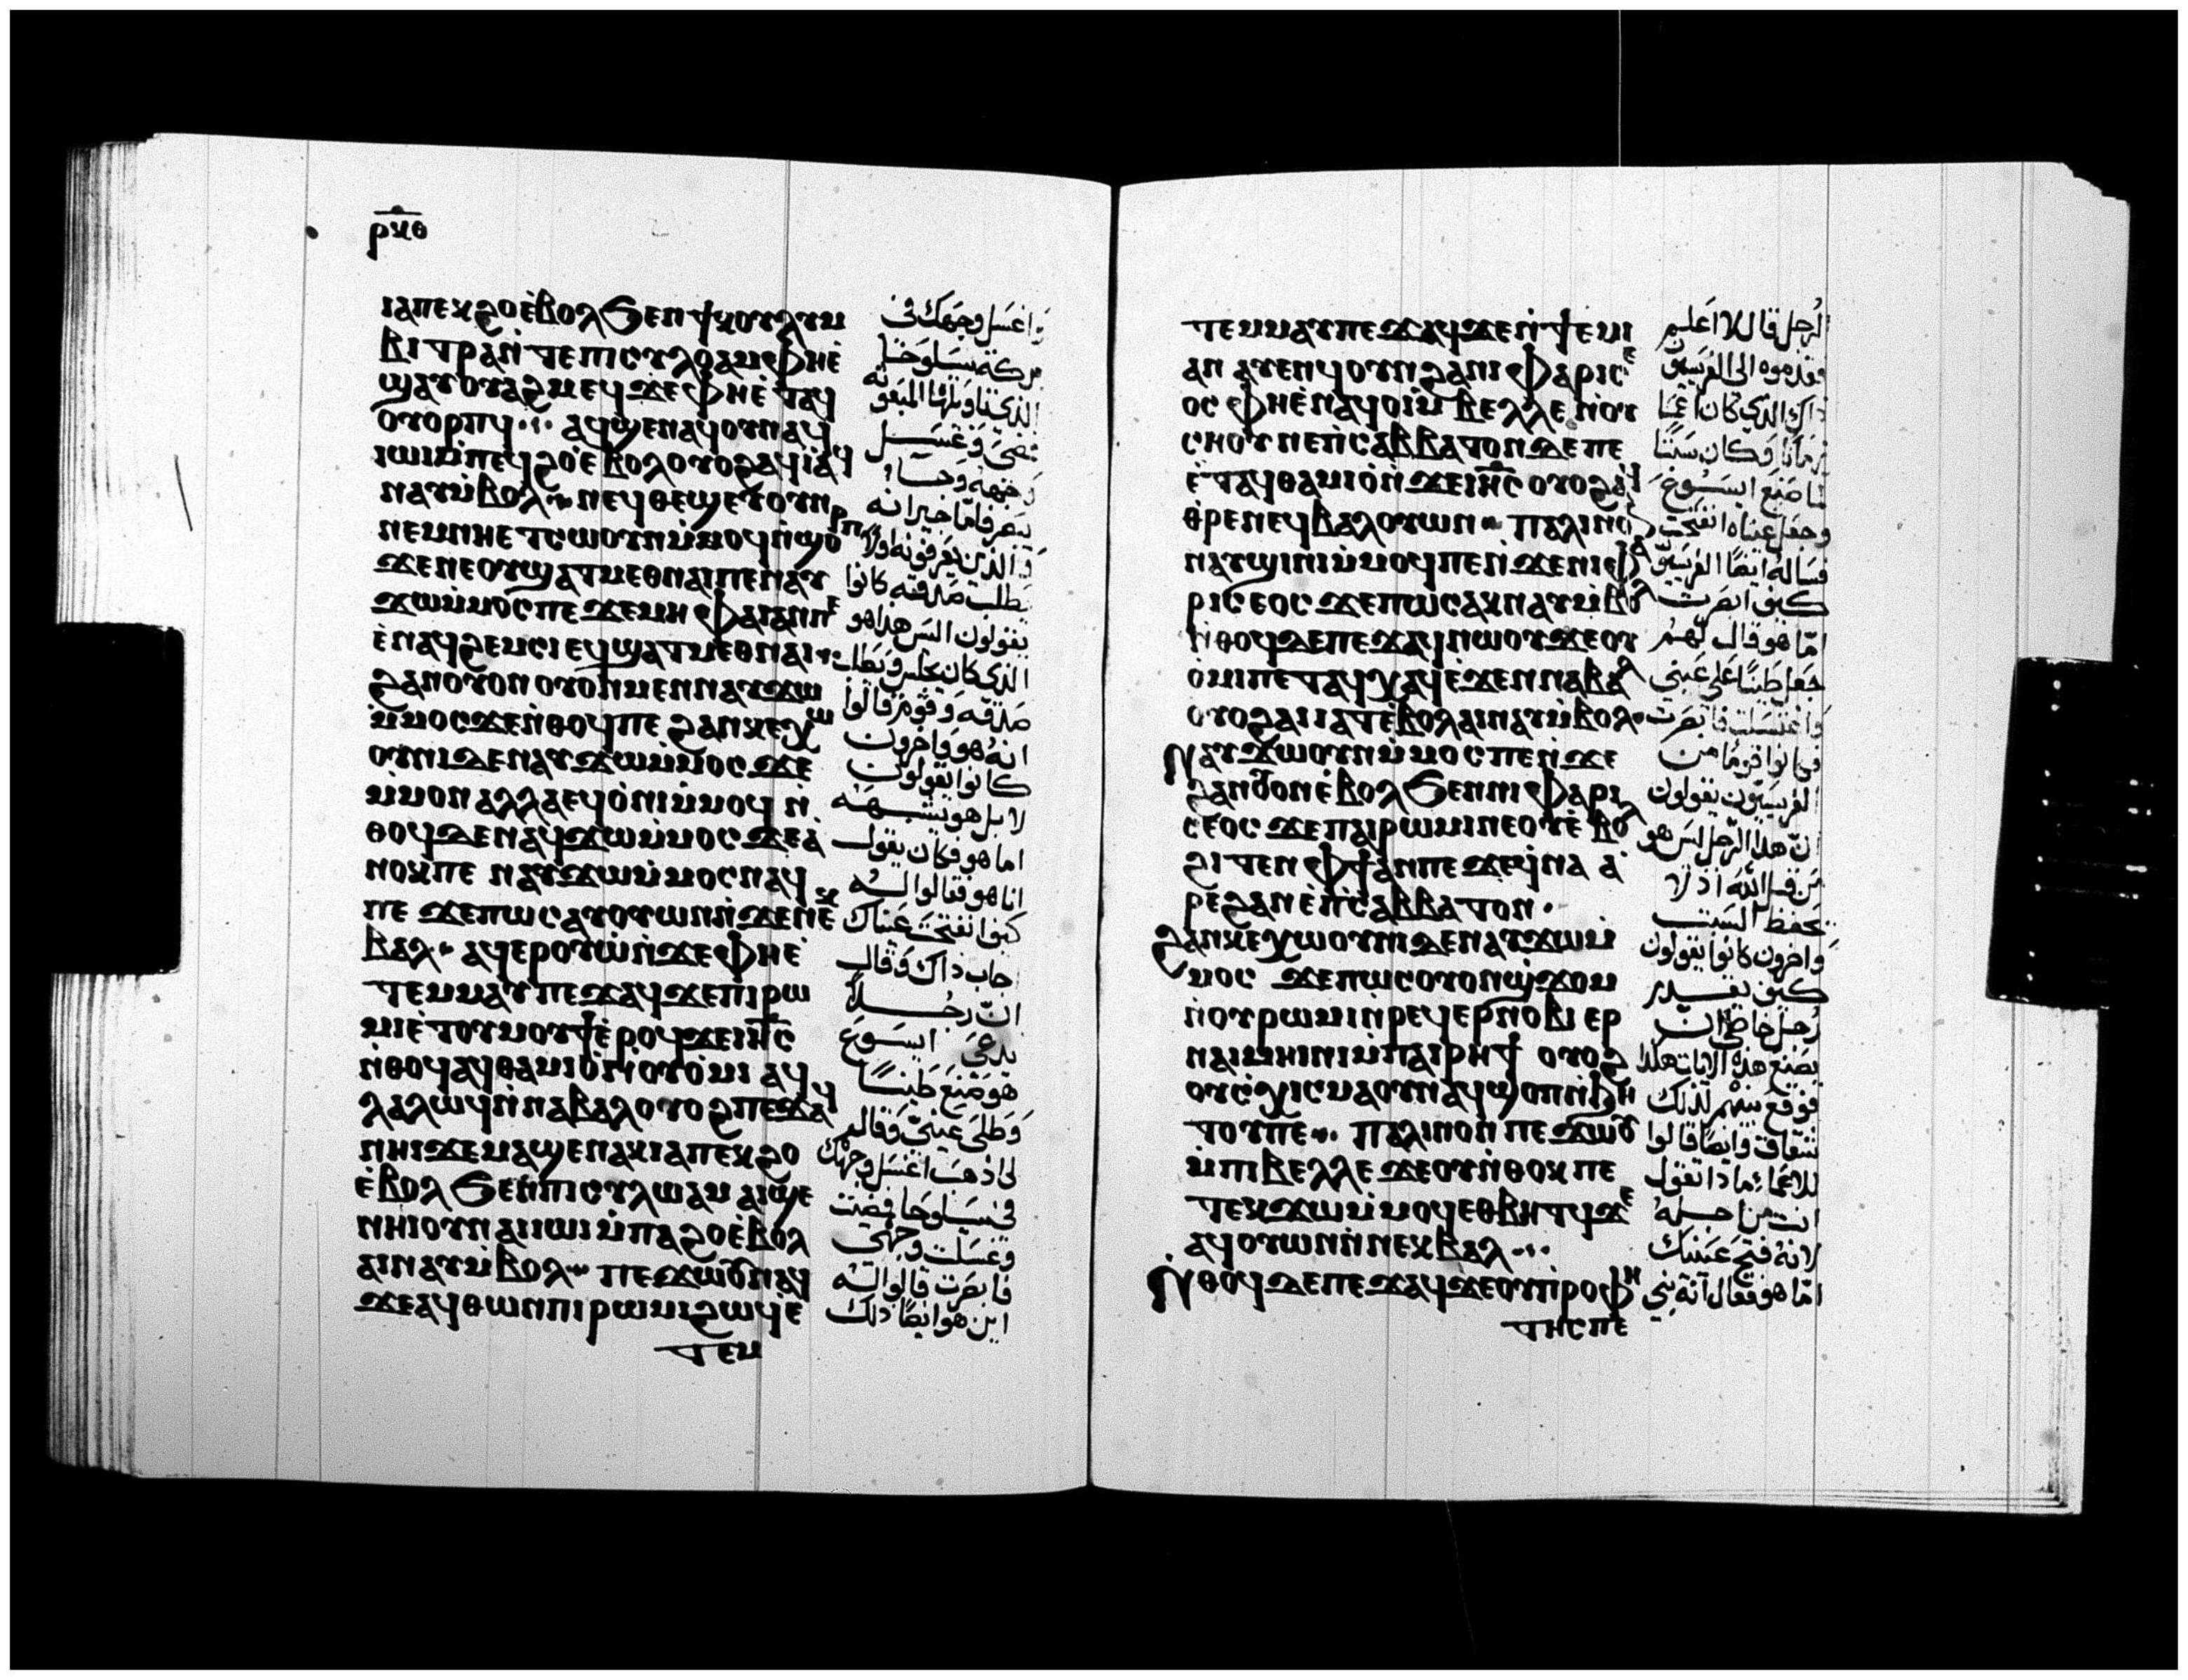 ⲣⲕⲑ
ⲓⲁⲡⲉⲕϩⲟⲉ̀ⲃⲟⲗϧⲉⲛϯⲕⲟⲗⲩⲙ
ⲃⲓⲧⲣⲁⲛ̀ⲧⲉⲡⲓⲥⲩⲗⲟⲁⲙⲫⲏⲉ̀
ϣⲁⲩⲟⲩⲁϩⲙⲉϥϫⲉⲫⲏⲉ̀ⲧⲁⲩ
ⲟⲩⲟⲣⲡϥ ⲁϥϣⲉⲛⲁϥⲟⲩⲛⲁϥ
ⲓⲱⲓⲙ̀ⲡⲉϥϩⲟⲉ̀ⲃⲟⲗⲟⲩⲟϩⲁϥⲓ̀ⲁϥ
ⲛⲁⲩⲙ̀ⲃⲟⲗ ⲛⲉϥⲑⲉϣⲉⲩⲟⲩⲛ
ⲛⲉⲙⲛⲏⲉⲧⲥⲱⲟⲩⲛⲙ̀ⲙⲟϥⲛ̀ϣⲟⲣⲡ
ϫⲉⲛⲉⲟⲩϣⲁⲧⲙⲉⲑⲛⲁⲓⲡⲉⲛⲁⲩ
ϫⲱⲙ̀ⲙⲟⲥⲡⲉ ϫⲉⲙⲏ ⲫⲁⲓⲁⲛⲡⲉ
ⲉ̀ⲛⲁϥϩⲉⲙⲥⲓ ⲉϥϣⲁⲧⲙⲉⲑⲛⲁⲓ
ϩⲁⲛⲟⲩⲟⲛ ⲟⲩⲟⲛⲙⲉⲛⲛⲁⲩϫⲱ
ⲙ̀ⲙⲟⲥϫⲉⲛ̀ⲑⲟϥⲡⲉ ϩⲁⲛⲕⲉⲭⲱ
ⲟⲩⲛⲓⲇⲉⲛⲁⲩϫⲱⲙ̀ⲙⲟⲥ ϫⲉ
ⲙ̀ⲙⲟⲛ ⲁⲗⲗⲁⲉϥⲟ̀ⲛⲓⲙ̀ⲙⲟϥ ⲛ̀
ⲑⲟϥⲇⲉⲛⲁϥϫⲱⲙ̀ⲙⲟⲥ ϫⲉⲁ̀
ⲛⲟⲕⲡⲉ ⲛⲁⲩϫⲱⲙ̀ⲙⲟⲥⲛⲁϥ
ⲡⲉ ϫⲉⲡⲱⲥⲁⲩⲟⲩⲱⲛⲛ̀ϫⲉⲛⲉⲕ
ⲃⲁⲗ ⲁϥⲉⲣⲟⲩⲱ̀ⲛ̀ϫⲉⲫⲏⲉ̀
ⲧⲉⲙⲙⲁⲩ ⲡⲉϫⲁϥϫⲉⲡⲓⲣⲱ
ⲙⲓⲉ̀ⲧⲟⲩⲙⲟⲩϯⲉ̀ⲣⲟϥϫⲉⲓⲏⲥ
ⲛ̀ⲑⲟϥⲁϥⲑⲁⲙⲓⲟ̀ⲛ̀ⲟⲩⲟ̀ⲙⲓ ⲁϥ
ⲗⲁⲗⲱϥⲛ̀ⲛⲁⲃⲁⲗⲟⲩⲟϩⲡⲉϫⲁϥ
ⲛⲏⲓϫⲉⲙⲁϣⲉⲛⲁⲕⲓⲁⲡⲉⲕϩⲟ
ⲉ̀ⲃⲟⲗ ϧⲉⲛⲡⲓⲥⲩⲗⲱⲁⲙ ⲁⲓϣⲉ
ⲛⲏⲓⲟⲩⲛ ⲁⲓⲓⲱⲓⲙ̀ⲡⲁϩⲟⲉ̀ⲃⲟⲗ
ⲁⲓⲛⲁⲩⲙ̀ⲃⲟⲗ ⲡⲉϫⲱⲟⲩⲛⲁϥ
ϫⲉⲁϥⲑⲱⲛⲡⲓⲣⲱⲙⲓϩⲱϥⲉ̀
ⲧⲉⲙ
واغسل وجهك فى
بركة سيلوخا
الذى تاويلها المبعوثه
فمضى وغسل
وجهه وجاء
يبصر فاما جيرانه
والذين يعرفونه اولا
يطلب صدقه كانوا
يقولون اليس هذا هو
الذى كان يجلس ويطلب
صدقه وقوم قالوا
انه هو واخرون
كانوا يقولون
لا بل هو يشبهه
اما هو فكان يقول
انا هو فقالوا له
كيف انفتحت عيناك
اجاب ذاك وقال
ان رجلا
يدعى ايسوع
هو صنع طينا
وطلى عينى وقال
لى اذهب اغسل وجهك
فى سيلوحا فمضيت
وغسلت وجهى
فابصرت قالوا له
اين هو ايضا ذلك
ⲧⲉⲙⲙⲁⲩⲡⲉϫⲁϥϫⲉⲛ̀ϯⲉⲙⲓ
ⲁⲛ ⲁⲩⲉⲛϥⲟⲩⲛϩⲁⲛⲓⲫⲁⲣⲓⲥⲉ
ⲟⲥ ⲫⲏⲉ̀ⲛⲁϥⲟⲓⲙ̀ⲃⲉⲗⲗⲉ ⲛ̀ⲟⲩ
ⲥⲏⲟⲩ ⲛⲉⲛ̀ⲥⲁⲃⲃⲁⲧⲟⲛⲇⲉⲡⲉ
ⲉ̀ⲧⲁϥⲑⲁⲙⲓⲟ̀ⲛ̀ϫⲉⲓⲏⲥ ⲟⲩⲟϩⲁϥ
ⲑ̀ⲣⲉⲛⲉϥⲃⲁⲗⲟⲩⲱⲛ ⲡⲁⲗⲓⲛⲟⲛ
ⲛⲁⲩϣⲓⲛⲓⲙ̀ⲙⲟϥⲡⲉⲛ̀ϫⲉⲛⲓⲫⲁ
ⲣⲓⲥⲉⲟⲥ ϫⲉⲡⲱⲥⲁⲕⲛⲁⲩⲙ̀ⲃⲟⲗ
ⲛ̀ⲑⲟϥⲇⲉⲡⲉϫⲁϥⲛⲱⲟⲩϫⲉⲟⲩ
ⲟ̀ⲙⲓⲡⲉⲧⲁϥⲭⲁϥⲉ̀ϫⲉⲛⲛⲁⲃⲁⲗ
ⲟⲩⲟϩⲁⲓⲓⲁⲧⲉ̀ⲃⲟⲗⲁⲓⲛⲁⲩⲙ̀ⲃⲟⲗ
ⲛⲁⲩϫⲱⲟⲩⲛⲙ̀ⲙⲟⲥⲡⲉⲛ̀ϫⲉ
ϩⲁⲛⲟⲩⲟⲛⲉ̀ⲃⲟⲗϧⲉⲛⲛⲓⲫⲁⲣⲓ
ⲥⲉⲟⲥ ϫⲉⲡⲁⲓⲣⲱⲙⲓⲛⲉⲟⲩⲉ̀ⲃⲟⲗ
ϩⲓⲧⲉⲛ ⲫϯⲁⲛⲡⲉ ϫⲉϥ̀ⲛⲁ ⲁ̀
ⲣⲉϩⲁⲛⲉ̀ⲛ̀ⲥⲁⲃⲃⲁⲧⲟⲛ
ϩⲁⲛⲕⲉⲭⲱⲟⲩⲛⲓⲇⲉⲛⲁⲩϫⲱⲙ̀
ⲙⲟⲥ ϫⲉⲡⲱⲥⲟⲩⲟⲛϣ̀ϫⲟⲙ
ⲛ̀ⲟⲩⲣⲱⲙⲓⲛ̀ⲣⲉϥⲉⲣⲛⲟⲃⲓ ⲉⲣ
ⲛⲁⲓⲙⲏⲓⲛⲓⲙ̀ⲡⲁⲓⲣⲏϯ ⲟⲩⲟϩ
ⲟⲩⲥⲭⲓⲥⲙⲁⲟⲩⲛⲁϥϣⲟⲡⲛ̀ϧⲏ
ⲧⲟⲩⲡⲉ ⲡⲁⲗⲓⲛⲟⲛ ⲡⲉϫⲱⲟⲩ
ⲙ̀ⲡⲓⲃⲉⲗⲗⲉ ϫⲉⲟⲩⲛ̀ⲑⲟⲕ ⲡⲉ
ⲧⲉⲕϫⲱⲙ̀ⲙⲟϥⲉⲑⲃⲏⲧϥϫⲉ
ⲁϥⲟⲩⲱⲛⲛ̀ⲛⲉⲕⲃⲁⲗ
ⲛ̀ⲑⲟϥⲇⲉⲡⲉϫⲁϥϫⲉⲟⲩⲡⲣⲟⲫⲏ
ⲧⲏⲥⲡⲉ
الرجل قال لا اعلم
فقدموه الى الفريسيين
ذاك الذى كان اعما
زمانا وكان سبتا
لما صنع ايسوع
وجعل عيناه انفتحت
فساله ايضا الفريسيون
كيف ابصرت
اما هو قال لهم
جعل طينا على عينى
واغتسلت فابصرت
فكانوا قوما من
الفريسيون يقولون
ان هذا الرجل ليس هو
من قبل الله اذ لا
يحفظ السبت
واخرون كانوا يقولون
كيف يقدر
رجل خاطى ان
يصنع هذه الايات هكذا
فوقع بينهم لذلك
شقاق وايضا قالوا
للاعما ماذا تقول
انت من اجله
لانه فتح عينيك
اما هو فقال انه نبى